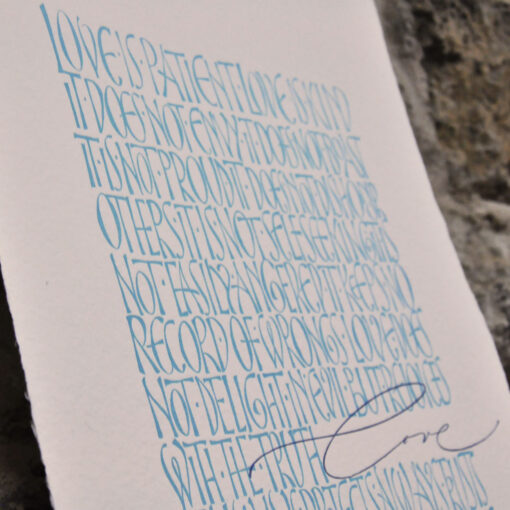 LOVE·IS·PATIENT LOVE IS KIND
IT·DOES·NOT·ENVY·IT·DOES NOT BOAST
IT·IS·NOT·PROUD IT·DOES NOT DISHONOR
OTHERS·IT·IS·NOT·SELF·SEEKING IT IS
NOT·EASILY ANGERED IT KEEPS NO
RECORD OF WRONGS·LOVE DOES
NOT·DELIGHT·IN EVIL·BUT REJOICES
WITH·THE·TRUTH
Love
PROTECTS ALWAYS TRUSTS